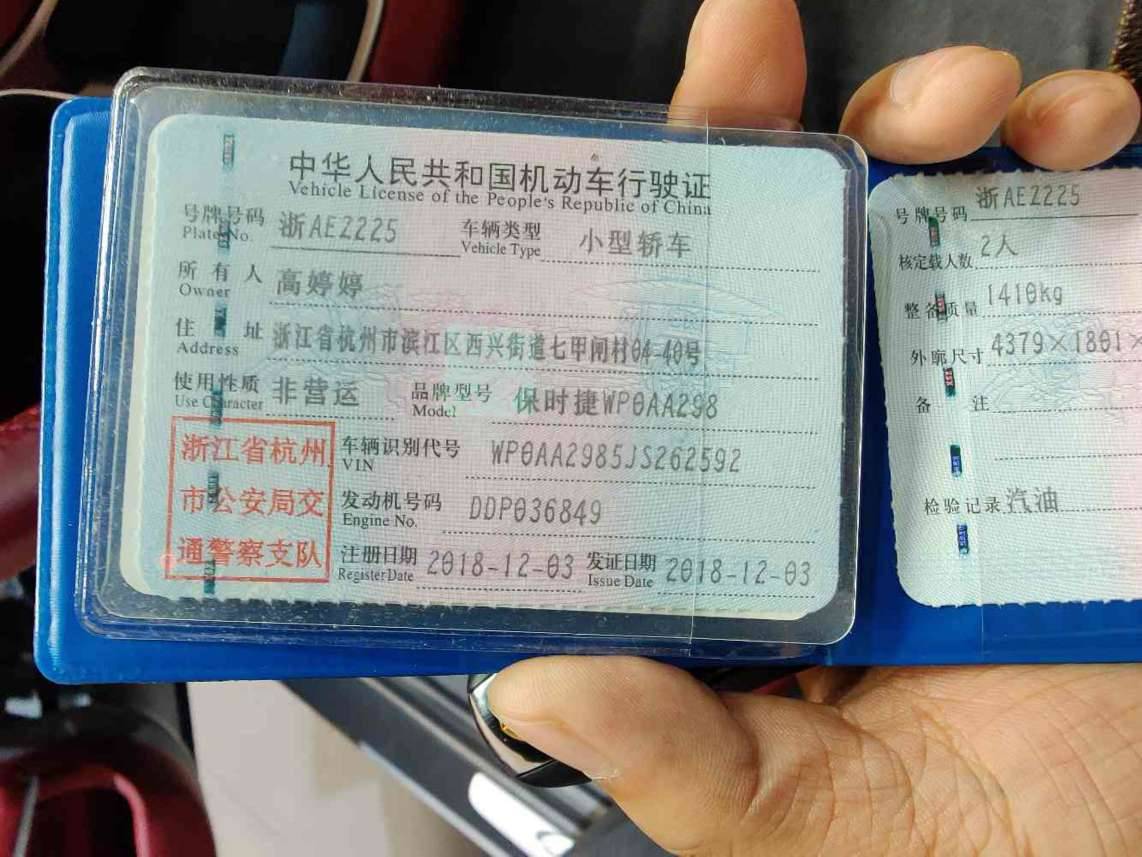 中华人民共和国机动车行驶证
Vehicle License of the People's Republic of China
号牌号码 浙AEZ225 车辆类型 小型轿车
Plate No. Vehicle Type
所有人 高婷婷
Owner
住址 浙江省杭州市滨江区西兴街道七甲闸村04-40号
Address
使用性质 非营运 品牌型号 保时捷WP0AA298
Use Character Model
浙江省杭州
市公安局交
通警察支队
车辆识别代号 WP0AA2985JS262592
VIN
发动机号码 DDP036849
Engine No.
注册日期 2018-12-03 发证日期 2018-12-03
Register Date Issue Date
号牌号码 浙AEZ225
核定载人数 2人
整备质量 1410kg
外廓尺寸 4379×1801×
备注
检验记录 汽油